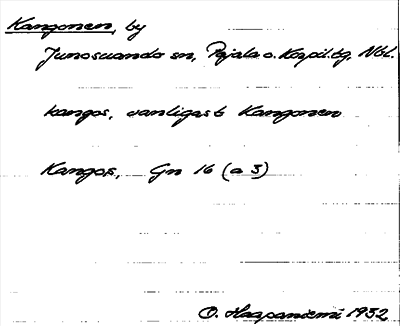 Kangonen, by
Junosuando sn, Pajala o. Korpil. tg, Nbl.
kangos, vanligast Kangonen
Kangos, Gn 16 (a 3)
O. Haapaniemi 1932